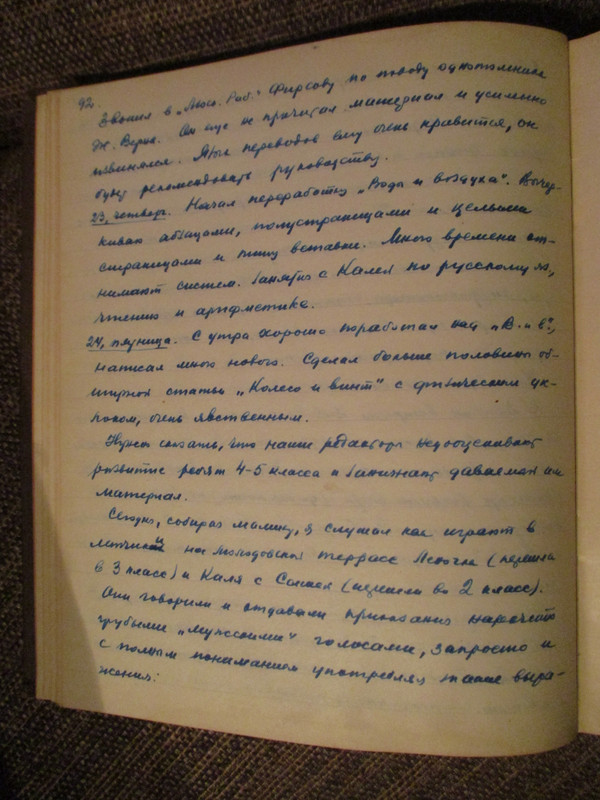 92.
Звонил в „Моск. Раб." Фирсову по поводу однотомника
Ж. Верна. Он еще не прочитал материал и усиленно
извинялся. Язык переводов ему очень нравится, он
будет рекомендовать руководству.
23, четверг. Начал переработку „Воды и воздуха". Вычер-
киваю абзацами, полустраницами и целыми
страницами и пишу вставки. Много времени от-
нимают систем. занятия с Калей по русскому яз.,
чтению и арифметике.
24, пятница. С утра хорошо поработал над „В. и В.",
написал много нового. Сделал больше половины об-
ширной статьи „Колесо и винт" с физическим ук-
лоном, очень явственным.
Нужно сказать, что наши редактора недооценивают
развитие ребят 4-5 класса и занижают даваемый им
материал.
Сегодня, собирая малину, я слушал как играют в
летчики на террасе (перешла
в 3 класс) и Каля с (перешли во 2 класс).
Они говорили и отдавали приказания нарочито
грубыми „мужскими" голосами, запросто и
с полным пониманием употребляя такие выра-
жения: